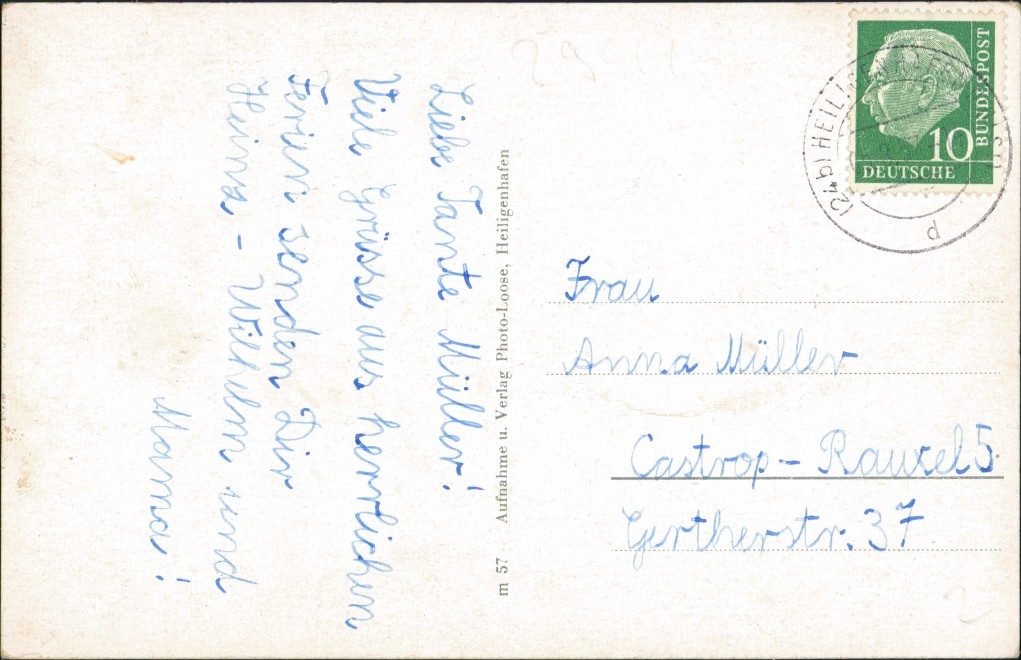 Liebe Tante Müller!
Viele Grüsse aus herrlichen
Ferien senden Dir
Heinz - Wilhelm und
Mama!
m 57 Aufnahme u. Verlag Photo-Loose, Heiligenhafen
DEUTSCHE
BUNDESPOST
10
(24b) HEILIG
d
Frau
Anna Müller
Castrop - Rauxel 5
Gertherstr. 37